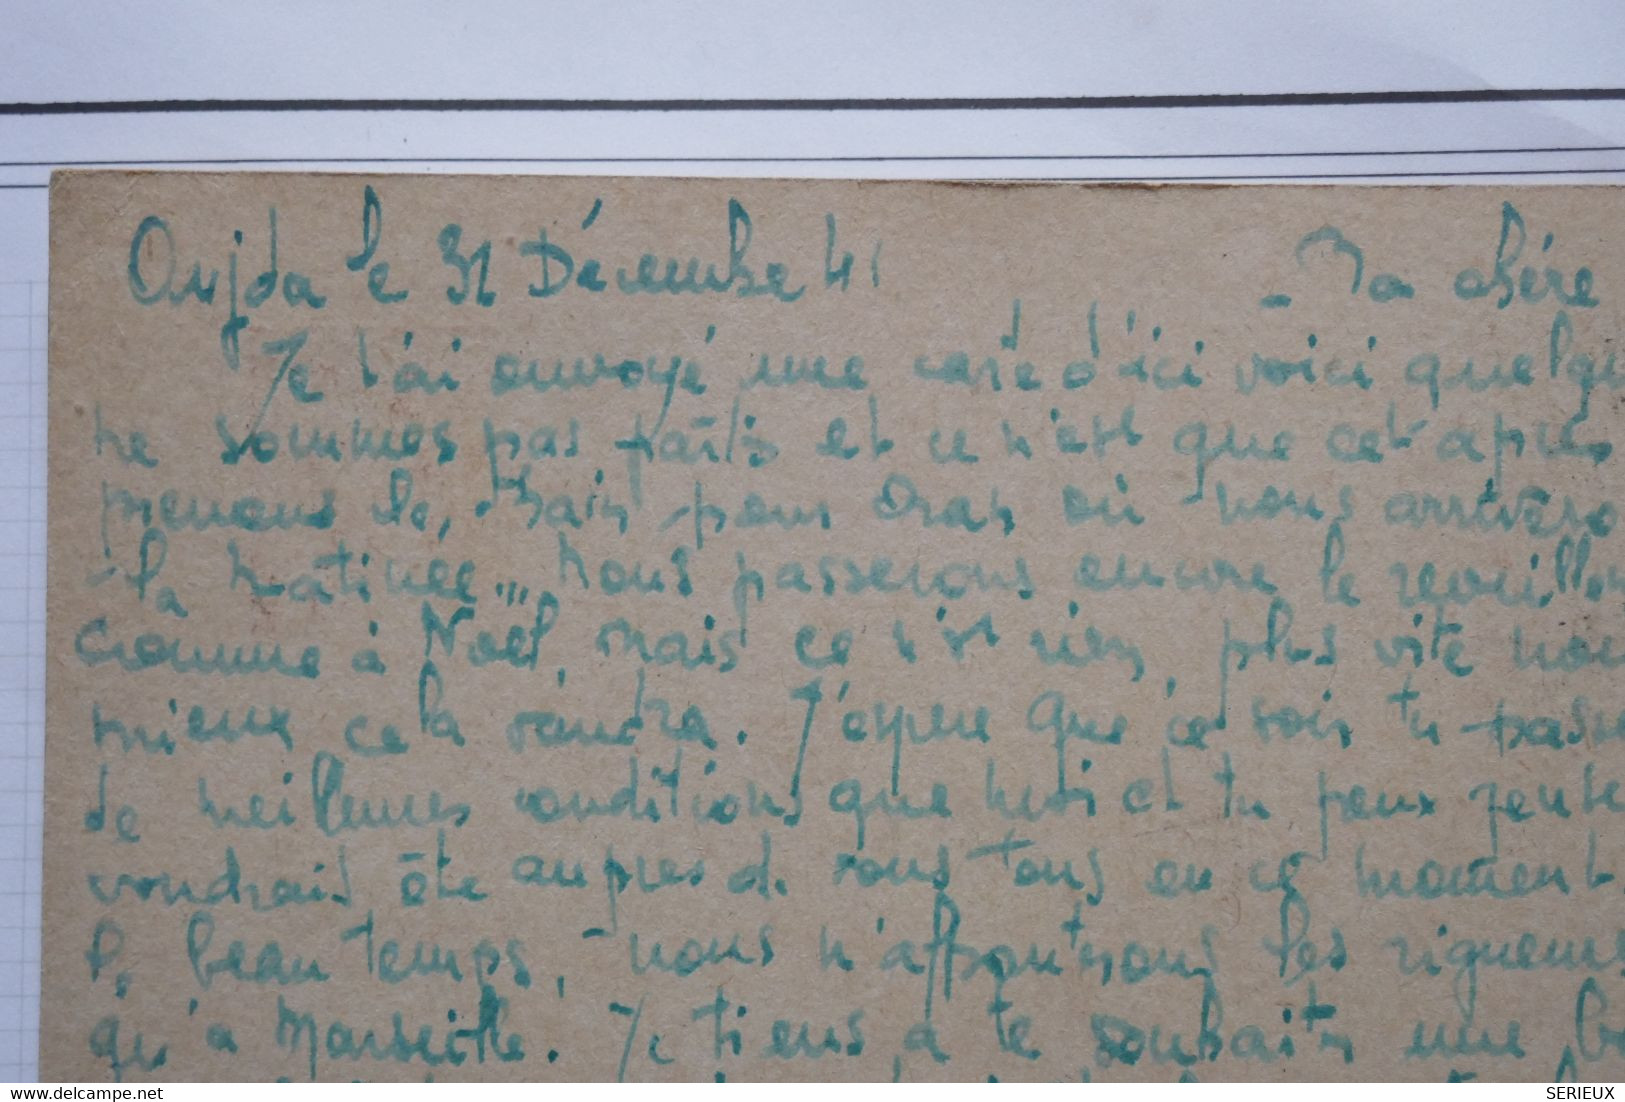 Oujda le 31 Décembre 41 - Ma chére
Je t'ai envoyé une carte d'ici voici quelqu
ne sommes pas partis et ce n'est que cet après
prenons le train pour Oran où nous arrivero
la matinée... Nous passerons encore le reveillon
comme à Noël, mais ce n'est rien, plus vite nou
mieux cela vaudra. J'espere que ce soir tu passe
de meilleures conditions que moi et tu peux pense
voudrais être aupres de vous tous en ce moment.
le beau temps, nous n'affontrons les rigueurs
qu'à Marseille. Je tiens a te souhaiter une b
SERIEUX
delcampe.net